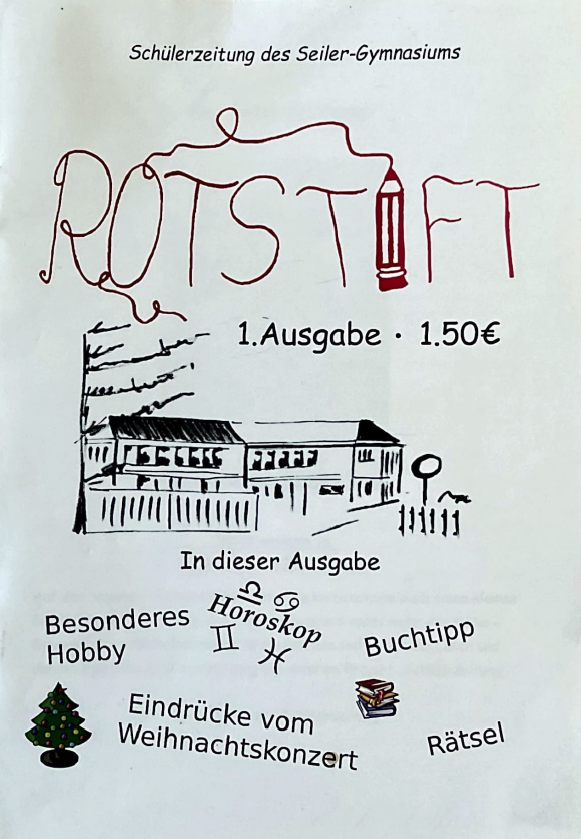 Schülerzeitung des Seiler-Gymnasiums
ROTSTIFT
1.Ausgabe · 1.50€
In dieser Ausgabe
Besonderes
Hobby
♎ ♋
Horoskop
♊ ♓
Buchtipp
Eindrücke vom
Weihnachtskonzert
Rätsel